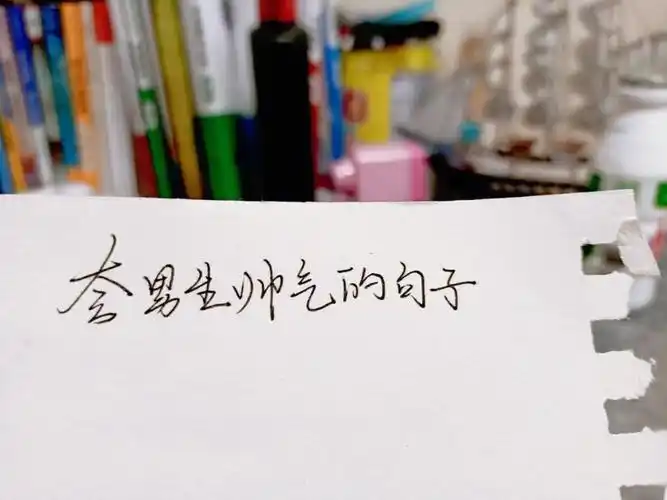 夸男生帅气的句子